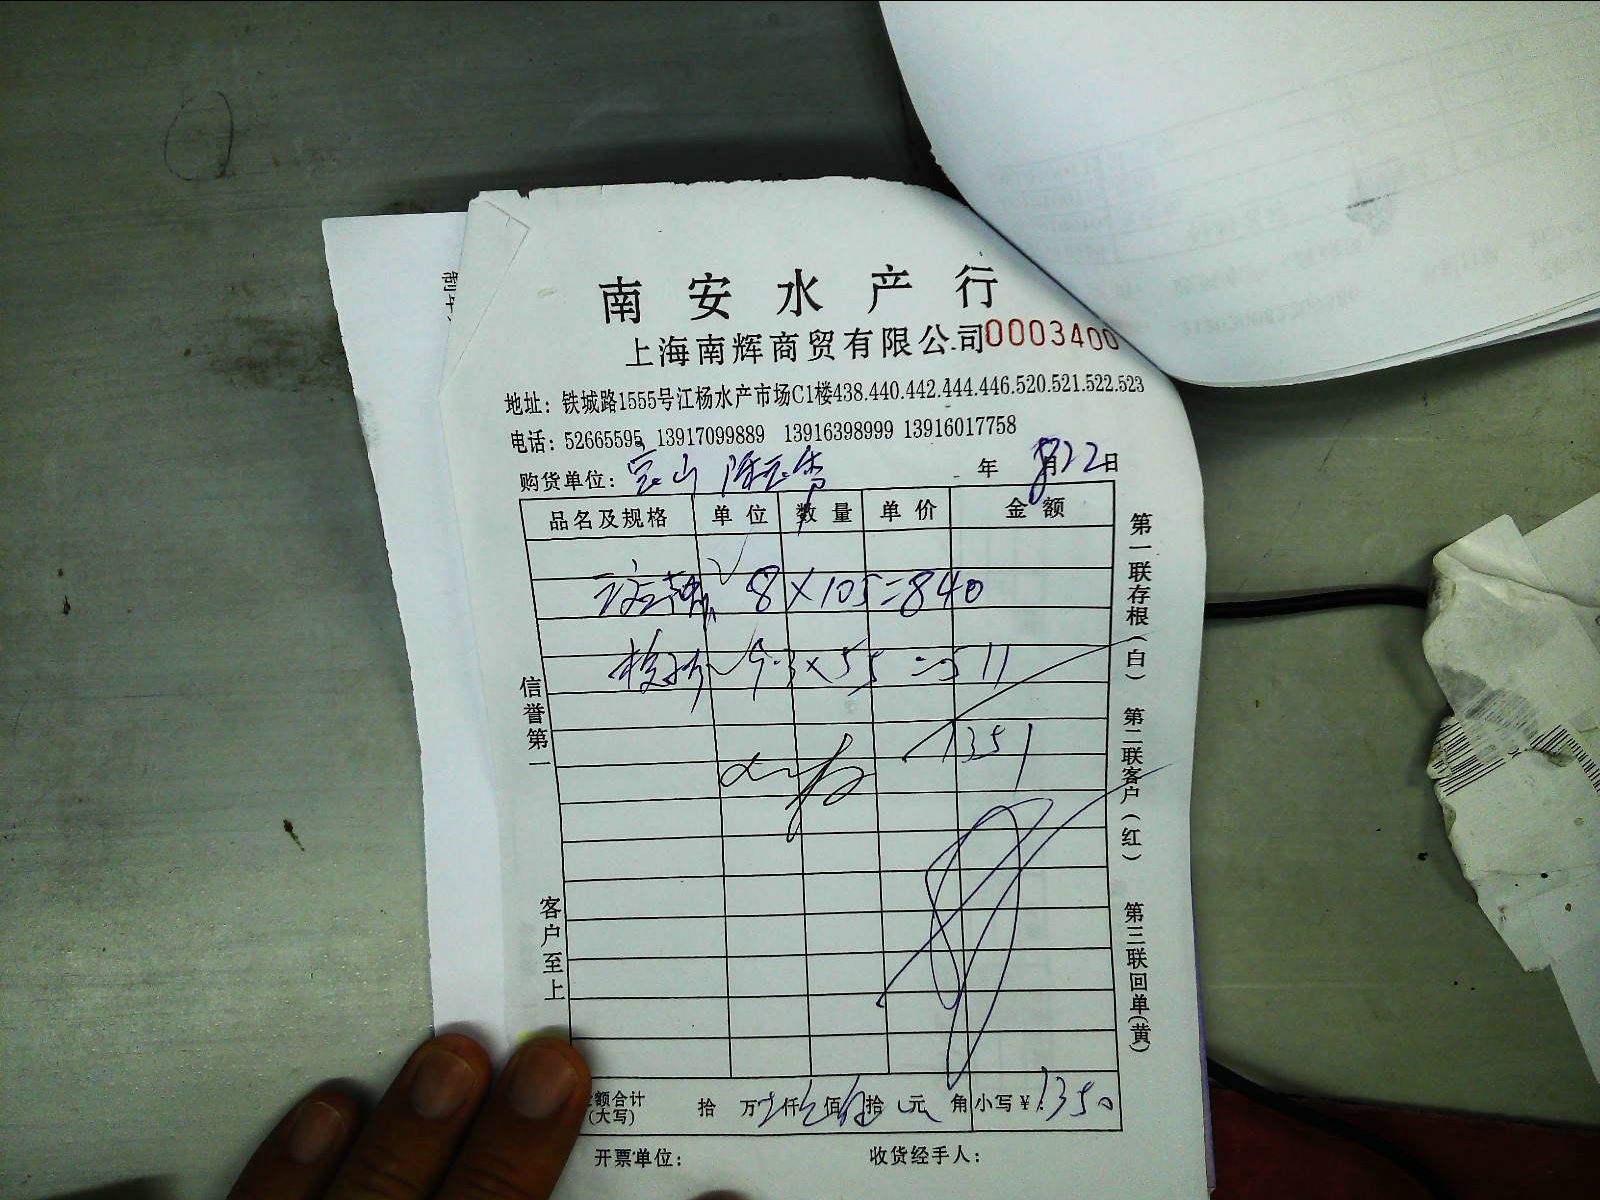 南安水产行
上海南辉商贸有限公司 0003400
地址：铁城路1555号江杨水产市场C1楼438.440.442.444.446.520.521.522.523
电话：52665595 13917099889 13916398999 13916017758
购货单位：宝山 陈 香 年 8月22日
品名及规格 单位 数量 单价 金额
8×105=840
9.3×55=511
1351
金额合计(大写) 拾 万 仟 佰 拾 元 角 小写￥：1350
开票单位： 收货经手人：
信誉第一
客户至上
第一联存根(白)
第二联客户(红)
第三联回单(黄)